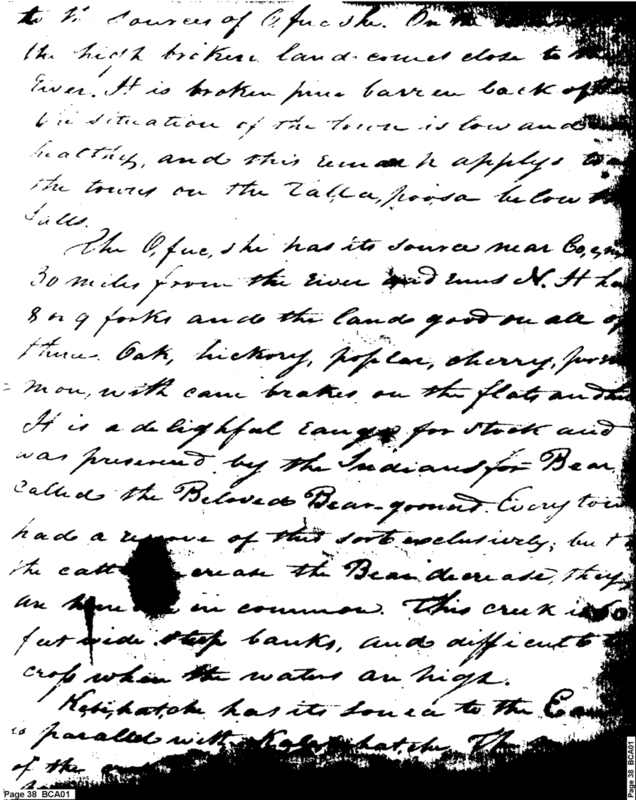 to the sources of O,fuc,she. On the
the high broken land comes close to
river. It is broken pine barren back of
The situation of the town is low and
healthy, and this remark applys to
the towns on the Talla,poosa below the
falls.
The O,fuc,she has its source near
30 miles from the river and runs N. It has
8 or 9 forks and the land good on all of
them. Oak, hickory, poplar, cherry,
mon, with cane brakes on the flats and
It is a delightful range for stock and
was preserved by the Indians for Bear,
called the Beloved Bear-ground. Every town
had a reserve of this sort exclusively; but
the cattle increase the Bear decrease, they
are in common. This creek is
feet wide steep banks, and difficult to
cross when the waters are high.
has its source to the
is parallel with
of the
Page 38 BCA01
Page 38 BCA01